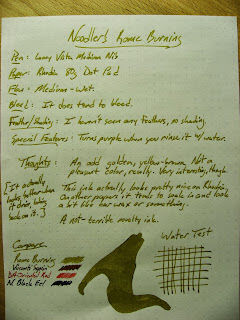 Noodler's Rome Burning
Pen: Lamy Vista Medium Nib
Paper: Rhodia 80g Dot Pad
Flow: Medium-wet.
Bleed: It does tend to bleed.
Feather/Shading: I haven't seen any feathers, no shading.
Special Features: Turns purple when you rinse it w/ water.
Thoughts: An odd golden, yellow-brown. Not a
pleasant color, really. Very interesting, though.
This ink actually looks pretty nice on Rhodia.
On other papers it tends to soak in and look
a bit like ear wax or something.
A not-terrible novelty ink.
[It actually
looks better when
it dries, being
such an .]
Compare
Rome Burning
Visconti Sepia
DA Oriental Red
N. Black Eel
Water Test